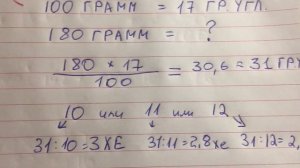 100 ГРАММ = 17 ГР. УГЛ.
180 ГРАММ = ?
180 * 17 / 100 = 30,6 = 31 ГРУ
10 или 11 или 12
31:10=3ХЕ 31:11=2,8хе 31:12=2,